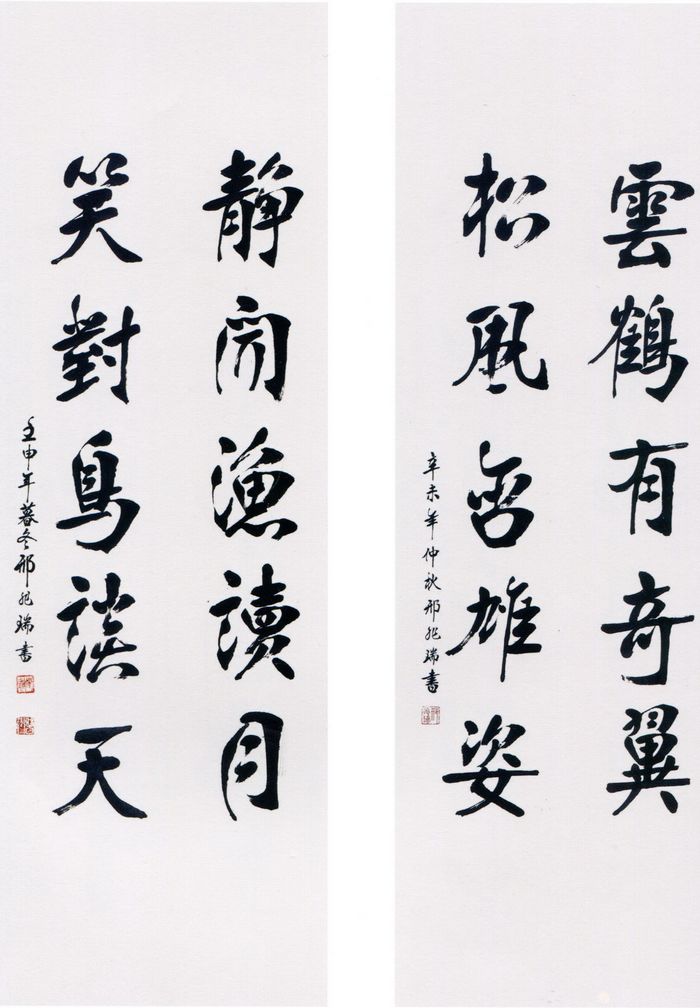 雲鶴有奇翼
松風含雄姿
辛未年仲秋邢瑞書
靜聞漁讀月
笑對鳥談天
壬申年暮冬邢瑞書